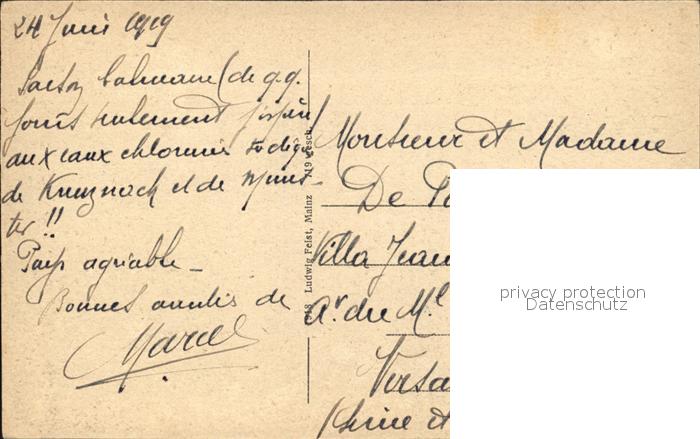 24 Juin 1919
Saison balnéaire (de q.q.
jours seulement
aux eaux chloruro sodiq.
de Kreuznach et de Muns-
ter !!
Pays agréable _
Bonnes amitiés de
Marcel
1918 Ludwig Feist, Mainz 719 Gesch.
Monsieur et Madame
De
Villa Jean
Ar. du Ml
Versa
(Seine et
privacy protection
Datenschutz